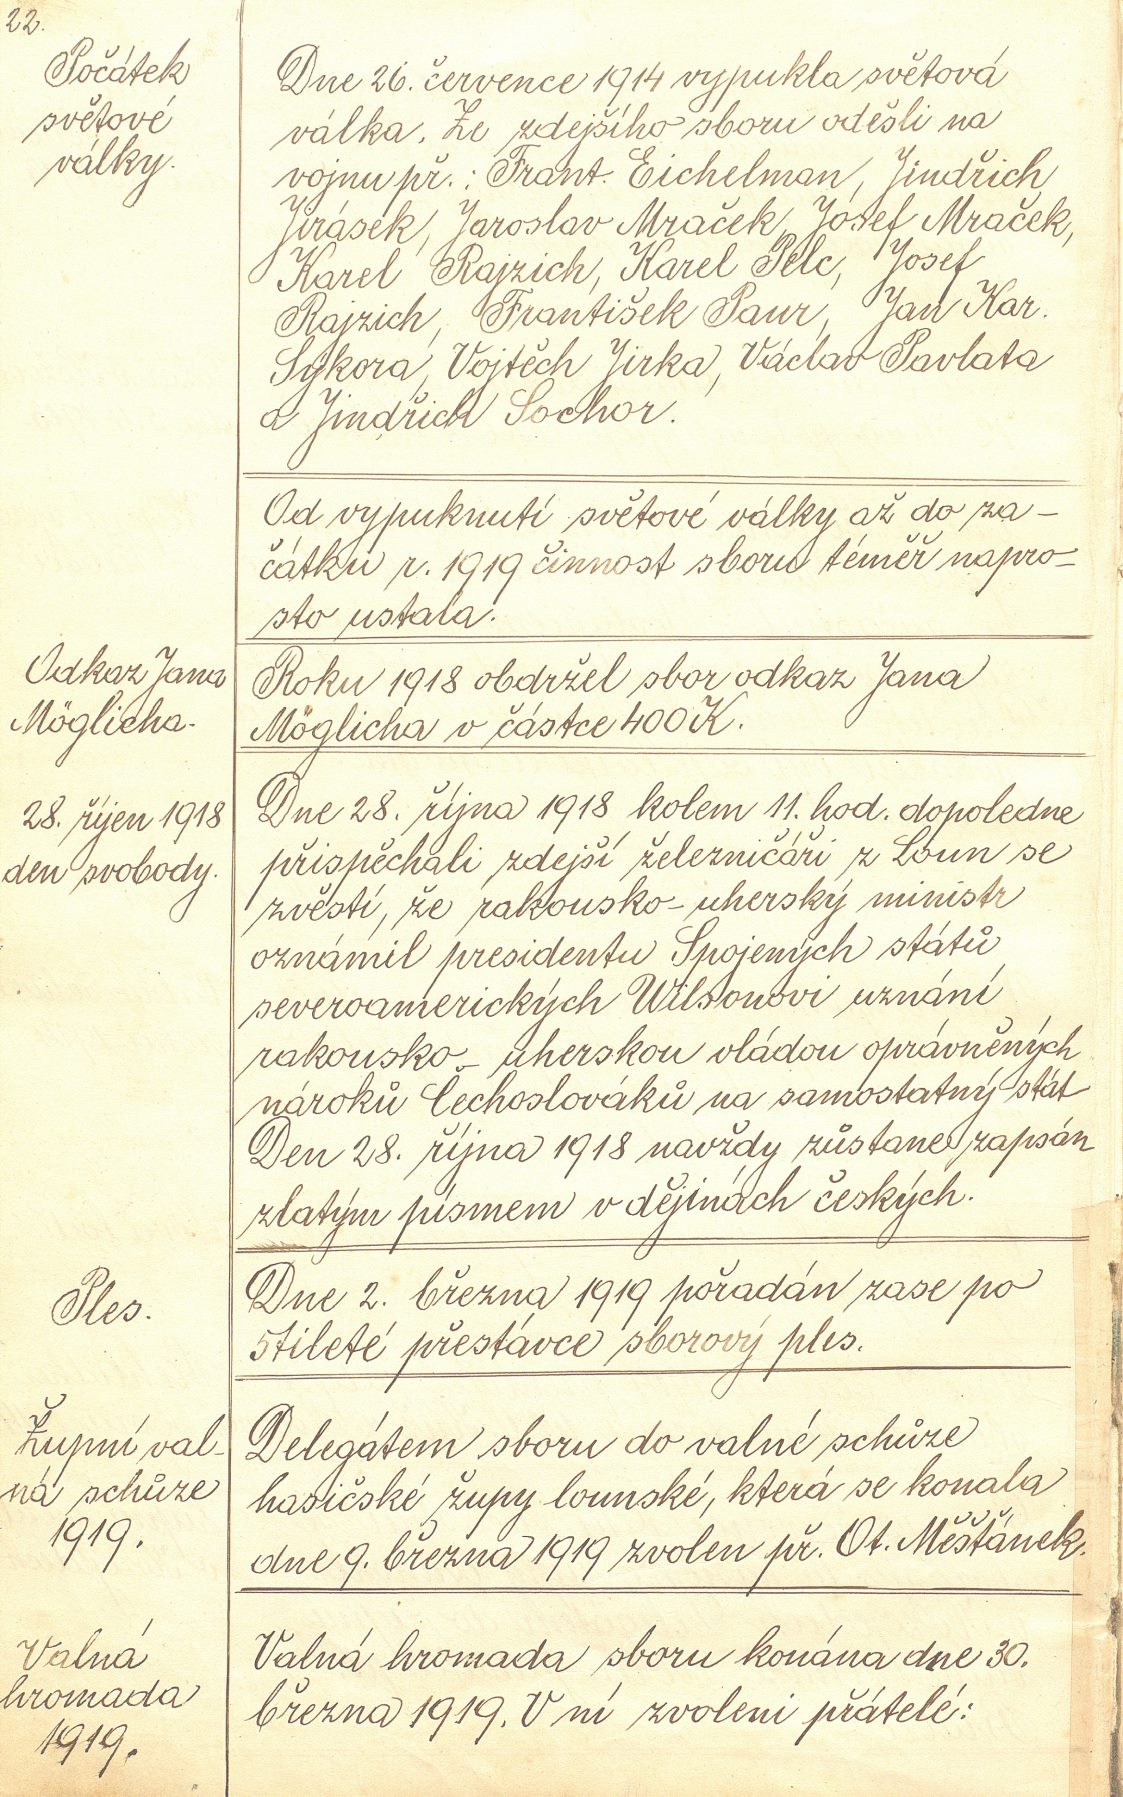 22.
Počátek
světové
války.
Dne 26. července 1914 vypukla světová
válka. Ze zdejšího sboru odešli na
vojnu př.: Frant. Eichelman, Jindřich
Jirásek, Jaroslav Mraček, Josef Mraček,
Karel Rajzich, Karel Pelc, Josef
Rajzich, František Paur, Jan Kar.
Sykora, Vojtěch Jirka, Václav Pavlata
a Jindřich Sochor.
Od vypuknutí světové války až do za-
čátku r. 1919 činnost sboru téměř napro-
sto ustala.
Odkaz Jana
Möglicha.
Roku 1918 obdržel sbor odkaz Jana
Möglicha v částce 400 K.
28. říjen 1918
den svobody.
Dne 28. října 1918 kolem 11. hod. dopoledne
přispěchali zdejší železničáři z Loun se
zvěstí, že rakousko-uherský ministr
oznámil presidentu Spojených států
severoamerických Wilsonovi uznání
rakousko-uherskou vládou oprávněných
nároků Čechoslováků na samostatný stát
Den 28. října 1918 navždy zůstane zapsán
zlatým písmem v dějinách českých.
Ples.
Dne 2. března 1919 pořadán zase po
5tileté přestávce sborový ples.
Župní val-
ná schůze
1919.
Delegátem sboru do valné schůze
hasičské župy lounské, která se konala
dne 9. března 1919 zvolen př. Ot. Měšťánek.
Valná
hromada
1919.
Valná hromada sboru konána dne 30.
března 1919. V ní zvoleni přátelé: